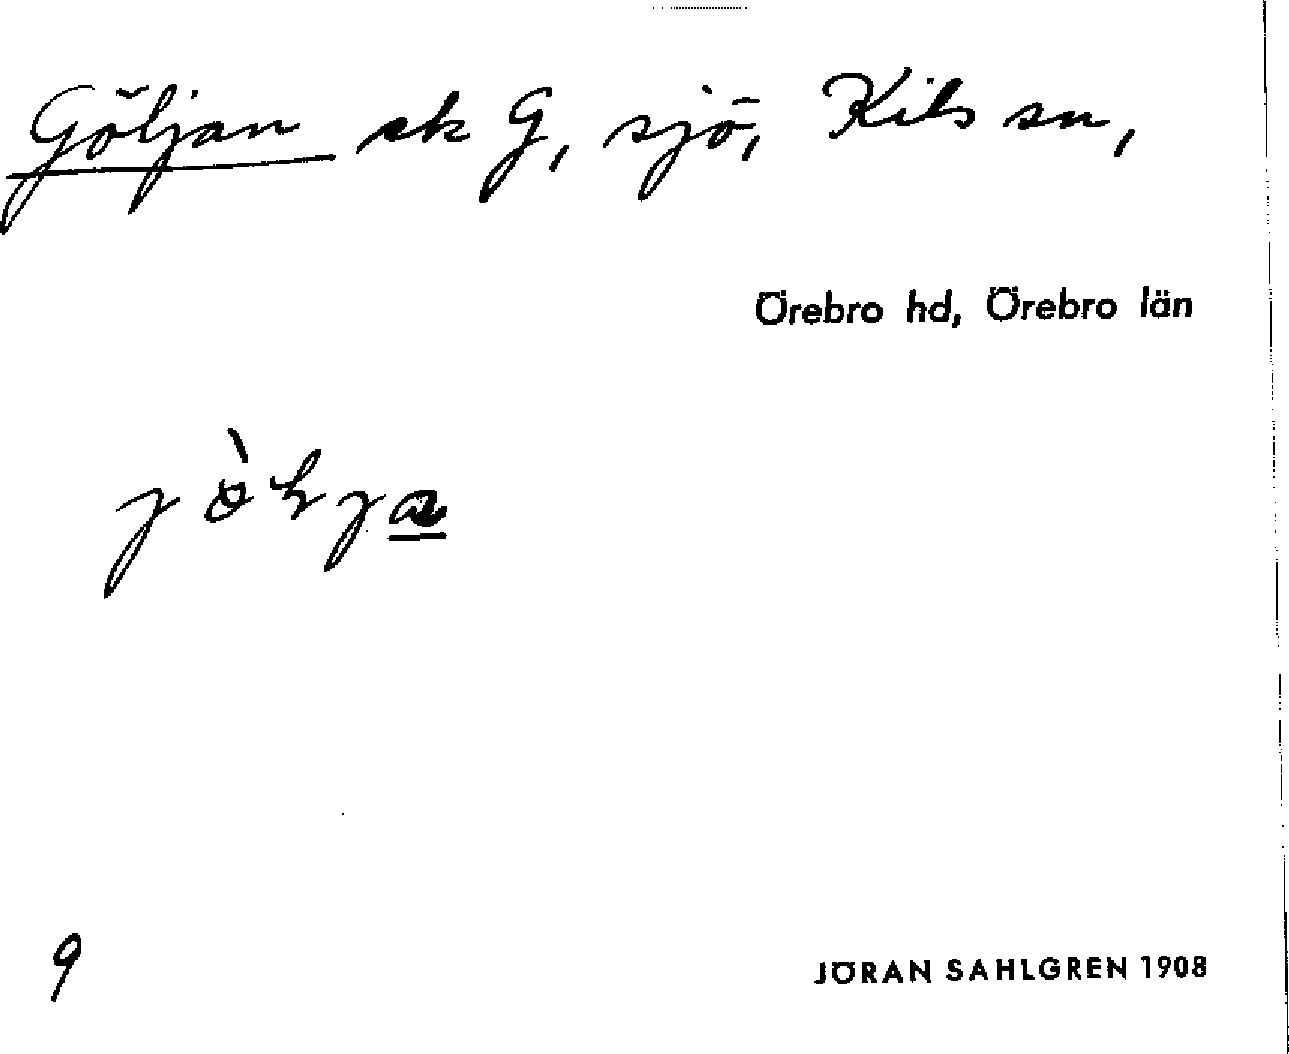 Göljan ek G, sjö, Kils sn,
Örebro hd, Örebro län
9
JÖRAN SAHLGREN 1908